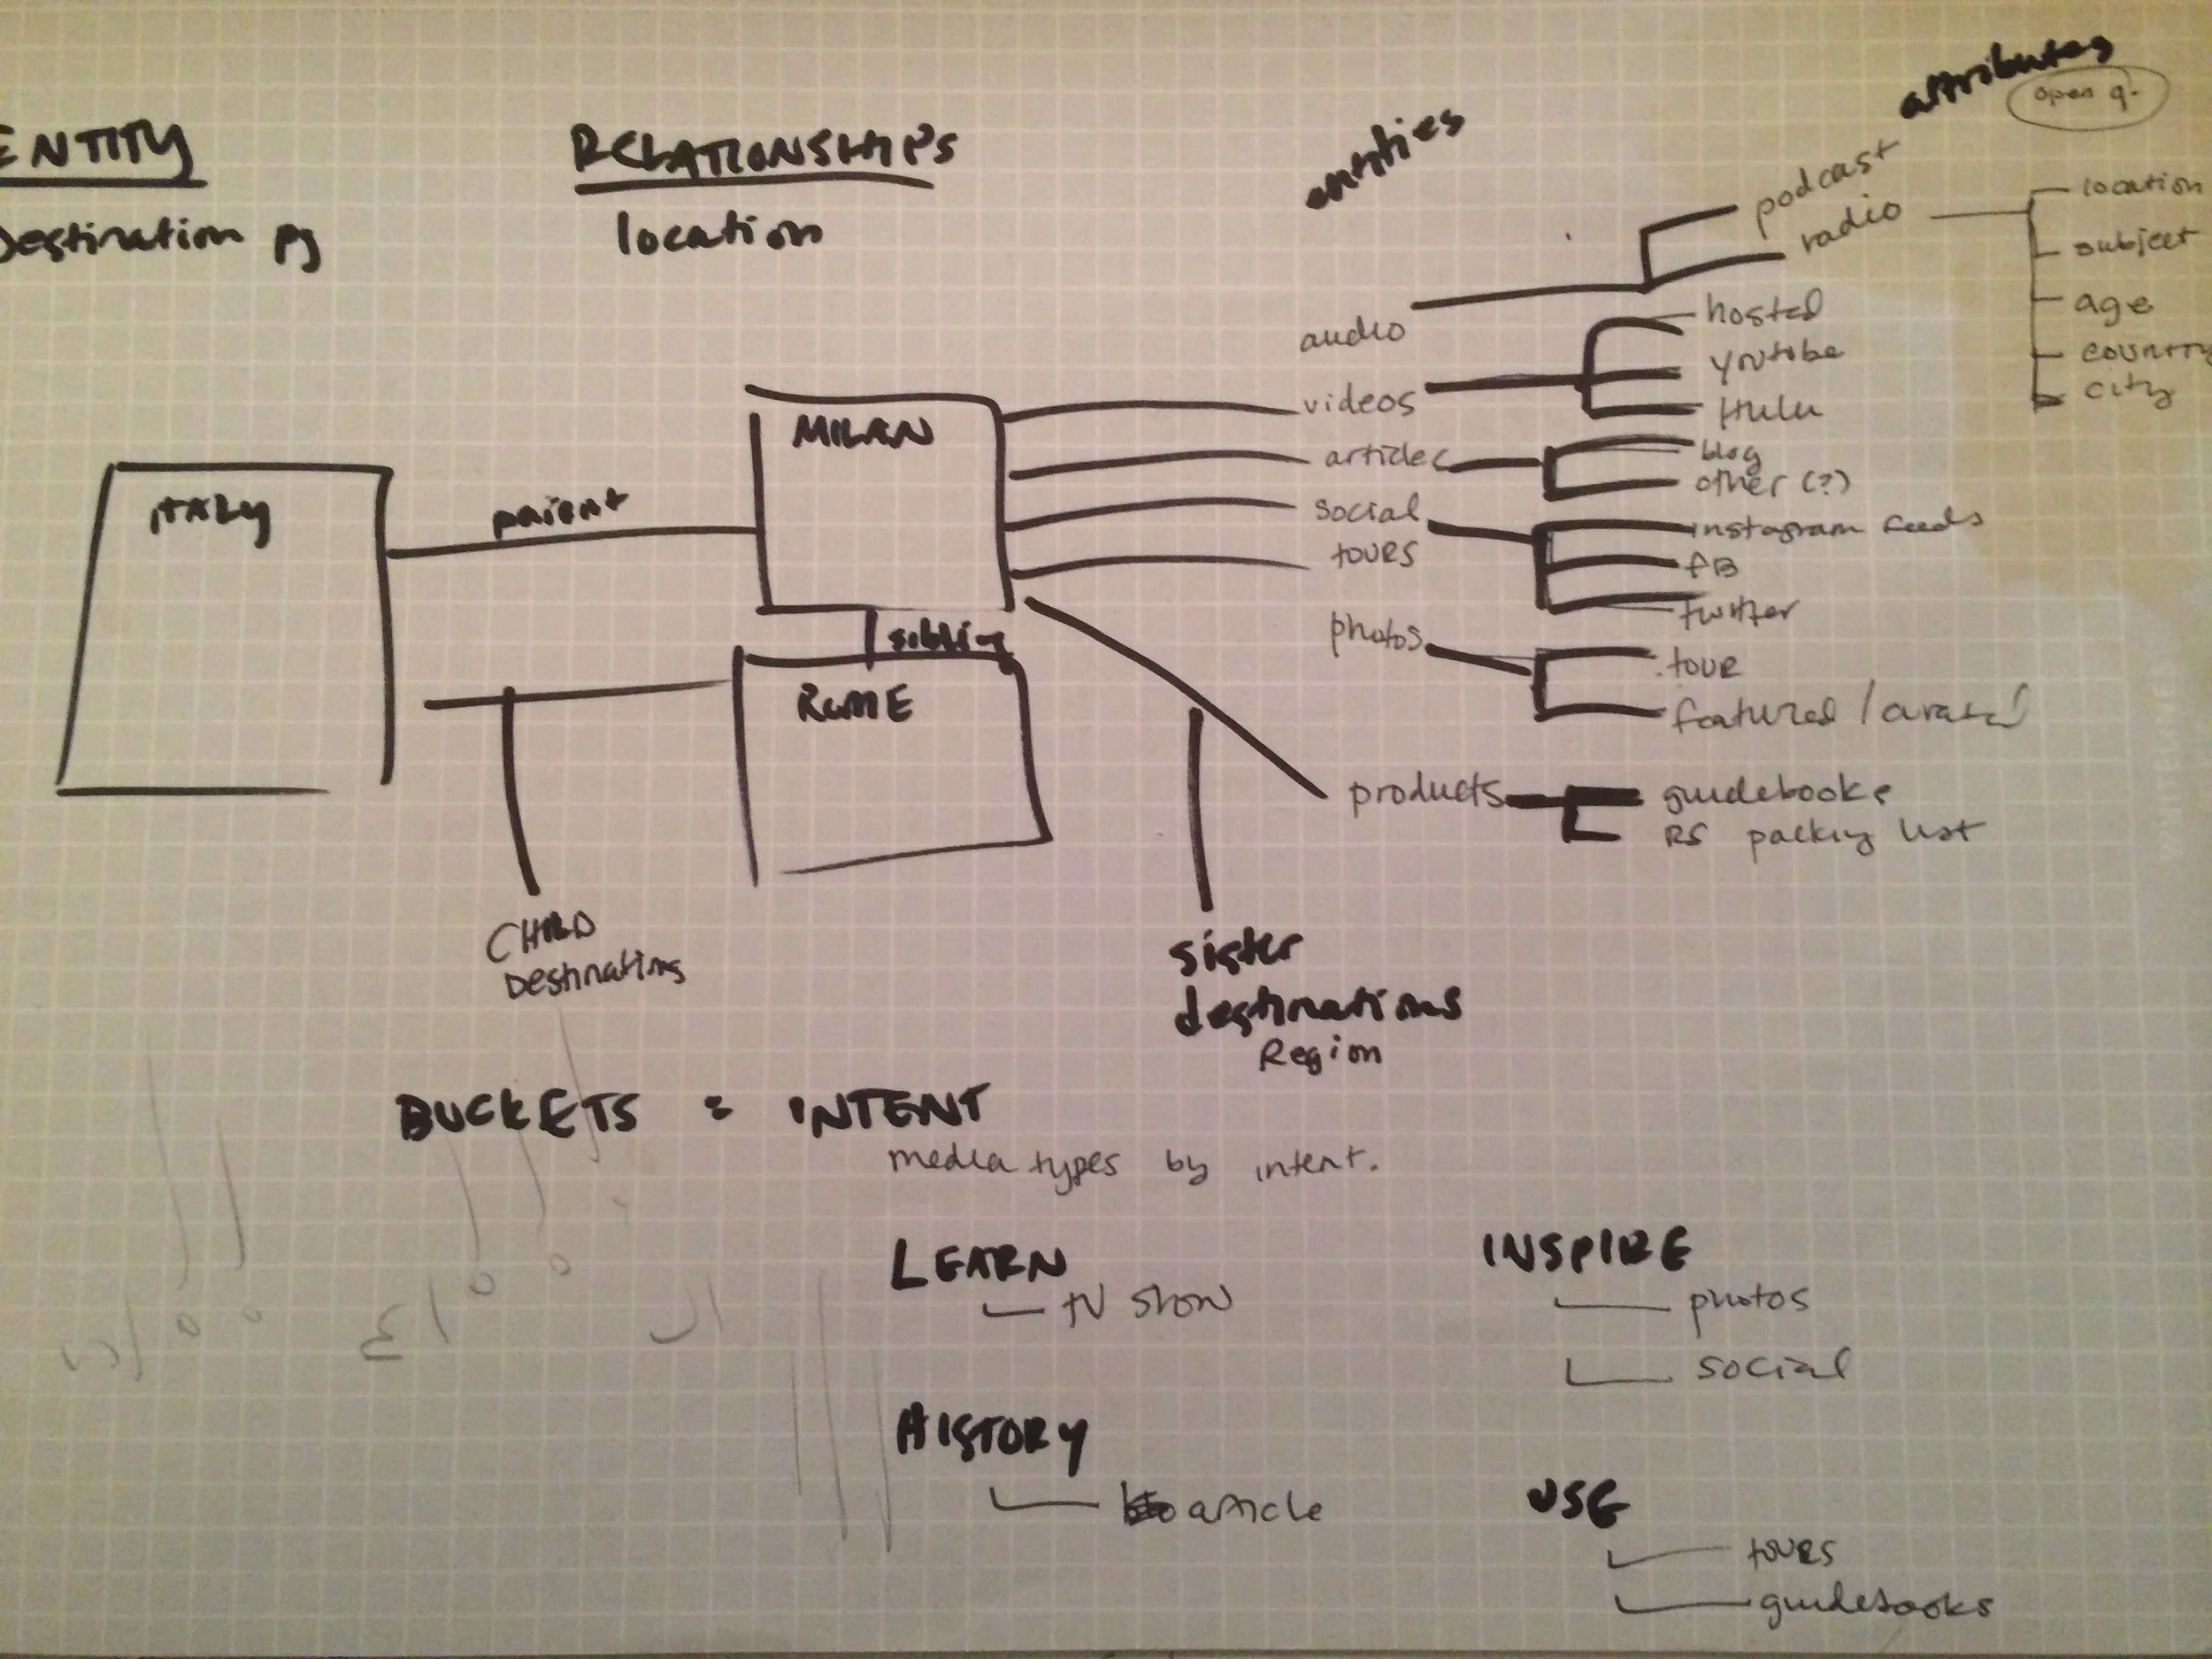 ENTITY
Destination pg
RELATIONSHIPS
location
entities
attributes
open q.
ITALY
parent
MILAN
sibling
ROME
CHILD
Destinations
sister
destinations
Region
audio
podcast
radio
location
subject
age
country
city
videos
hosted
Hulu
articles
blog
other (?)
social
instagram feeds
FB
twitter
tours
photos
tour
featured /
products
guidebooks
RS packing list
BUCKETS = INTENT
media types by intent.
LEARN
TV show
HISTORY
article
INSPIRE
photos
social
USE
tours
guidebooks